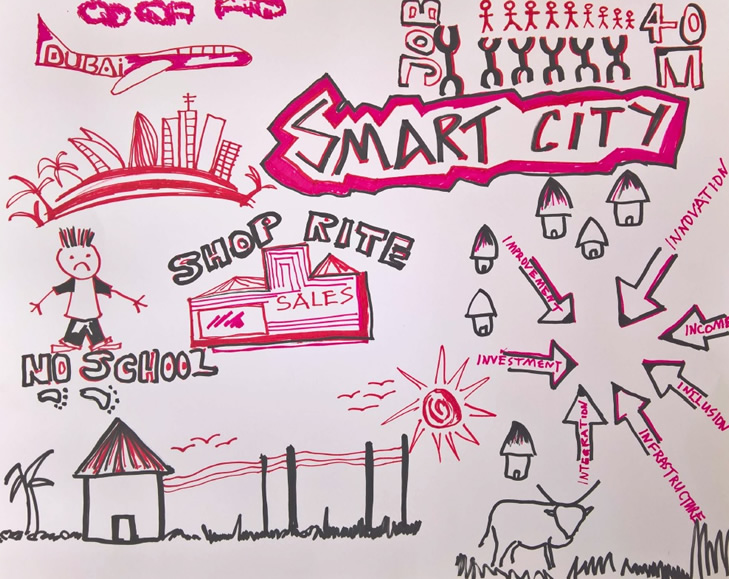 DUBAi
JOB
40
M
SMART CITY
SHOP RITE
SALES
NO SCHOOL
IMPROVEMENT
INNOVATION
INCOME
INVESTMENT
INCLUSION
INTEGRATION
INFRASTRUCTURE